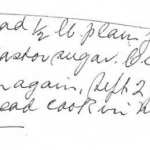 ad ½ lb plain
castor sugar.
again, Sift 2
ead cook in